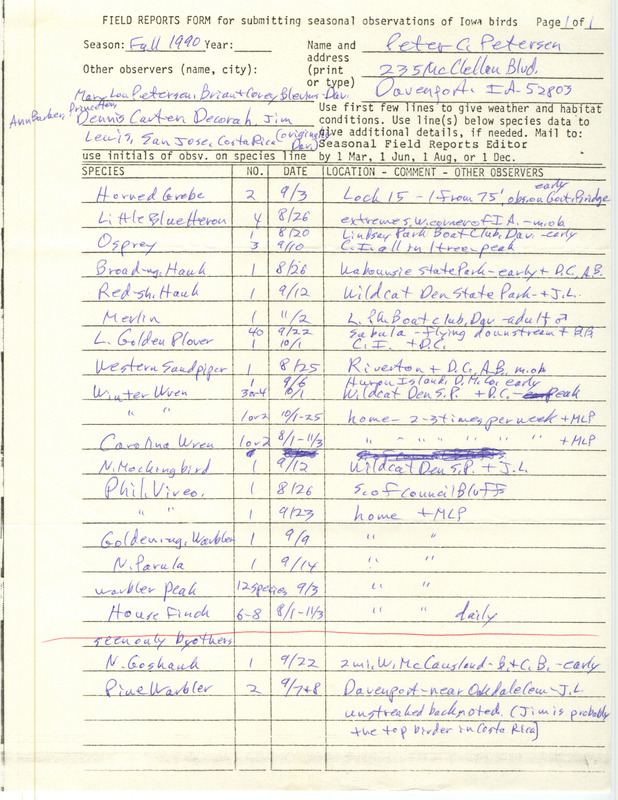 FIELD REPORTS FORM for submitting seasonal observations of Iowa birds Page 1 of 1
Season: Fall 1990 Year: Name and Peter C. Petersen
address
Other observers (name, city): (print 235 McClellan Blvd.
or type) Davenport, IA 52803
Mary Lou Petersen, Brian + Corey Blevins - Dav.
Ann Barker, Princeton,
Dennis Carter, Decorah, Jim
Lewis, San Jose, Costa Rica (originally Dav.)
Use first few lines to give weather and habitat
conditions. Use line(s) below species data to
give additional details, if needed. Mail to:
Seasonal Field Reports Editor
use initials of obsv. on species line by 1 Mar, 1 Jun, 1 Aug, or 1 Dec.
SPECIES NO. DATE LOCATION - COMMENT - OTHER OBSERVERS
Horned Grebe 2 9/3 Lock 15 - 1 from 75', obs on Govt. Bridge early
Little Blue Heron 4 8/26 extreme s.w. corner of IA. - m.ob
Osprey 1 8/20 Lindsay Park Boat Club, Dav - early
3 9/10 C.I. all in 1 tree - peak
Broad-ng. Hawk 1 8/26 Wabounsie State Park - early + D.C, A.B.
Red-sh. Hawk 1 9/12 Wildcat Den State Park - + J.L.
Merlin 1 11/2 L. Pk. Boat club, Dav - adult ♂
L. Golden Plover 40 9/22 Sabula - flying downstream + BB
1 10/1 C.I. + D.C.
Western Sandpiper 1 8/25 Riverton + D.C, A.B, m.ob
Winter Wren 1 9/6 Huron Island, D.M. Co, early
3 or 4 10/1 Wildcat Den S.P. + D.C. - peak
" " 1 or 2 10/1-25 home - 2-3 times per week + MLP
Carolina Wren 1 or 2 8/1-11/3 " - " " " " " + MLP
N. Mockingbird 1 9/12 Wildcat Den S.P. + J.L.
Phil. Vireo. 1 8/26 Se of Council Bluffs
" " 1 9/23 home + MLP
Golden-ng. Warbler 1 9/9 " "
N. Parula 1 9/14 " "
warbler peak 12 species 9/3 " "
House Finch 6-8 8/1-11/3 " " daily
seen only by others
N. Goshawk 1 9/22 2 mi. W. McCausland - B. + C.B. - early
Pine Warbler 2 9/7+8 Davenport - near Oakdale Cem - J.L.
unstreaked back noted. (Jim is probably
the top birder in Costa Rica)